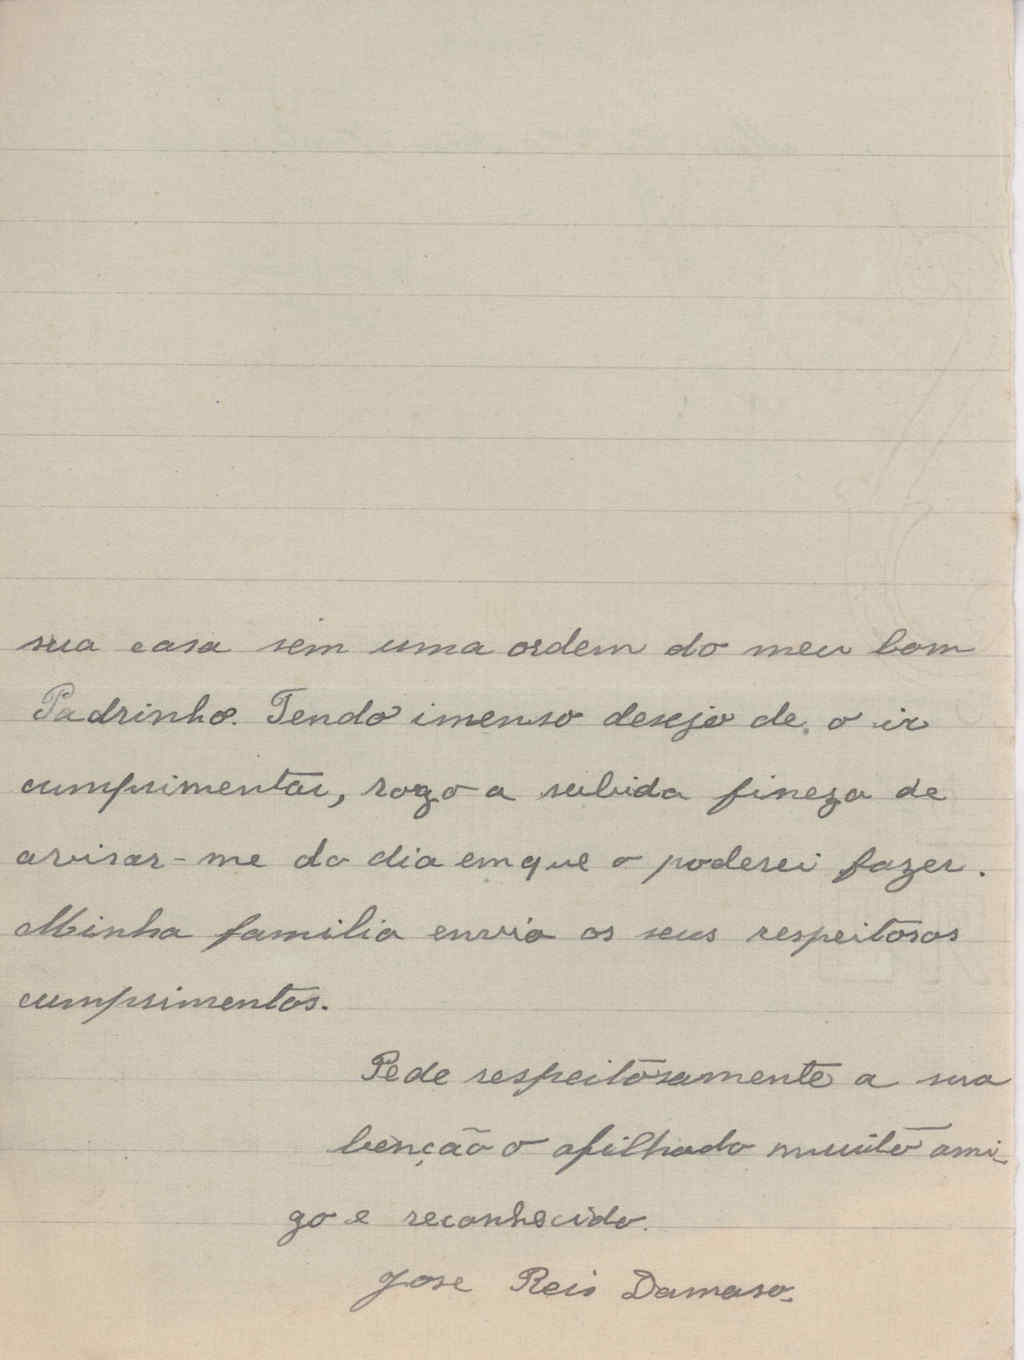 sua casa sem uma ordem do meu bom
Padrinho. Tendo imenso desejo de o ir
cumprimentar, rogo a subida fineza de
avisar-me do dia em que o poderei fazer.
Minha familia envia os seus respeitosos
cumprimentos.
Pede respeitosamente a sua
benção o afilhado muito ami-
go e reconhecido.
Jose Reis Damaso.